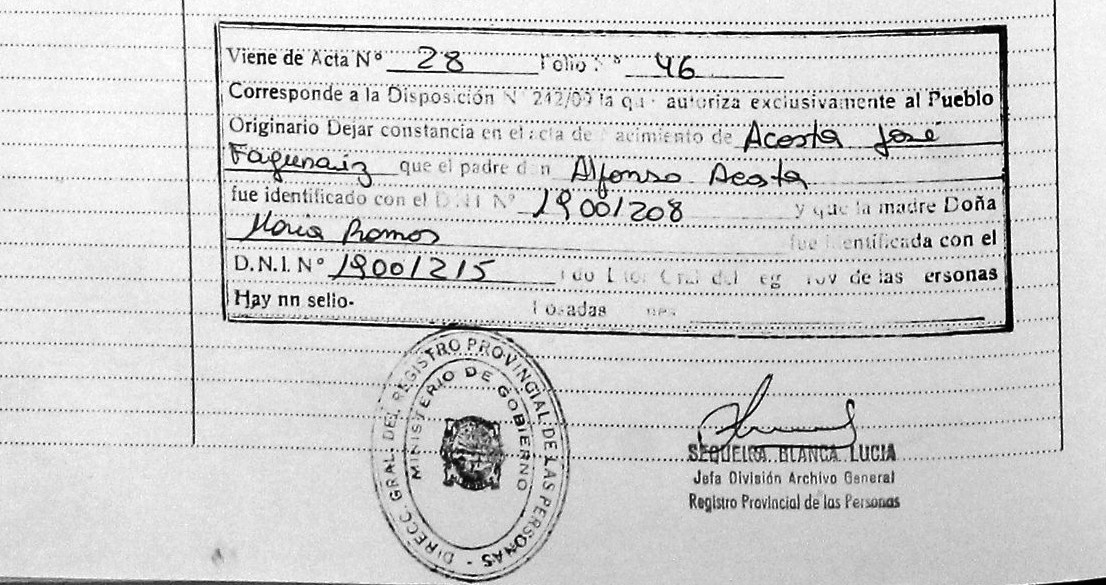 Viene de Acta Nº 28 Folio Nº 46
Corresponde a la Disposición Nº 242/09 la que autoriza exclusivamente al Pueblo
Originario Dejar constancia en el acta de nacimiento de Acosta José
que el padre don Alfonso Acosta
fue identificado con el D.N.I Nº 19001208 y que la madre Doña
Maria Ramos fue identificada con el
D.N.I. Nº 19001215 de las ersonas
Hay nn sello-
DIRECC. GRAL. DEL REGISTRO PROVINCIAL DE LAS PERSONAS -
MINISTERIO DE GOBIERNO
SEQUEIRA, BLANCA LUCIA
Jefa División Archivo General
Registro Provincial de las Personas